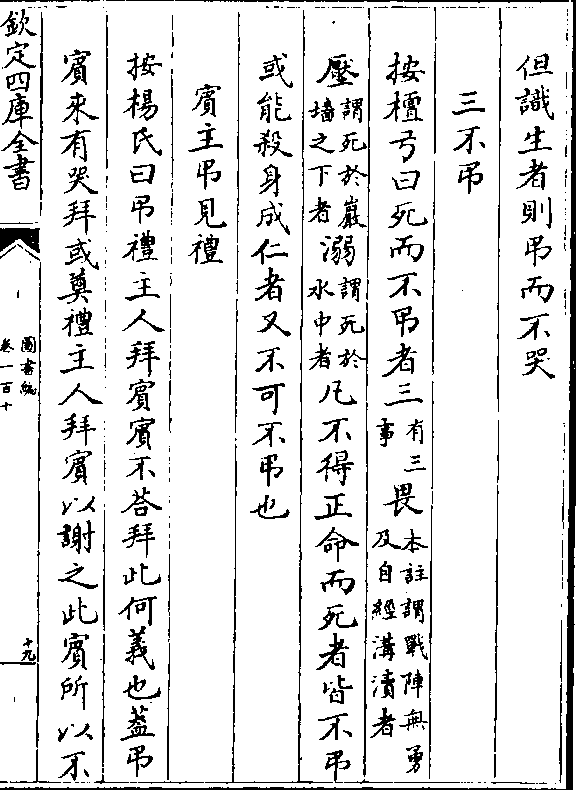 但識生者則弔而不哭
三不弔
按檀弓曰死而不弔者三有三事畏本註謂戰陣無勇及自經溝瀆者
壓謂死於巖墻之下者溺謂死於水中者凡不得正命而死者皆不弔
或能殺身成仁者又不可不弔也
賓主弔見禮
按楊氏曰弔禮主人拜賓賓不荅拜此何義也葢弔
賓來有哭拜或奠禮主人拜賓以謝之此賓所以不
欽定四庫全書
圖書編
卷一百十
十九